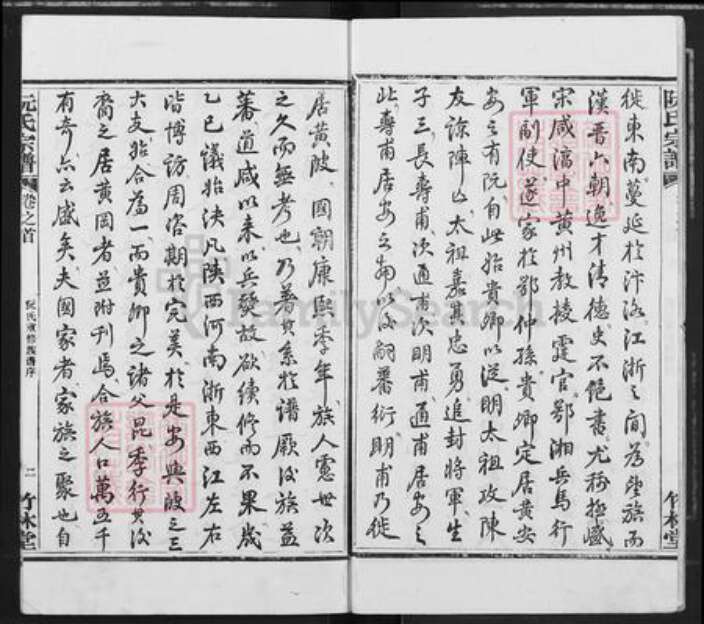 阮氏宗譜
竹林堂
徙東南蔓延於汴洛江浙之間為望族而
漢晉六朝逸才清德史不絕書尤稱極盛
宋咸淳中黃州教授霆官鄂湘兵馬行
軍副使遂家於鄂仲孫貴卿定居黃安
安之有阮自此始貴卿以從明太祖攻陳
友諒陣亡太祖嘉其忠勇追封將軍生
子三長壽甫次通甫次明甫通甫居安之
此壽甫居安之南以後嗣蕃衍明甫乃徙
居黃陂國朝康熙季年族人憲世次
之久而無考也乃著其系於譜厥後族益
蕃道咸以來以兵燹故欲續修而不果歲
乙巳議始決凡陝西河南浙東西江左右
皆博訪周咨期於完美於是安與陂之三
大支始合為一而貴卿之諸父昆季行其後
裔之居黃岡者並附刊焉合族人口萬五千
有奇亦云盛矣夫國家者家族之聚也自
阮氏宗譜
卷之首
阮氏重修族譜序
二
竹林堂
FamilySearch